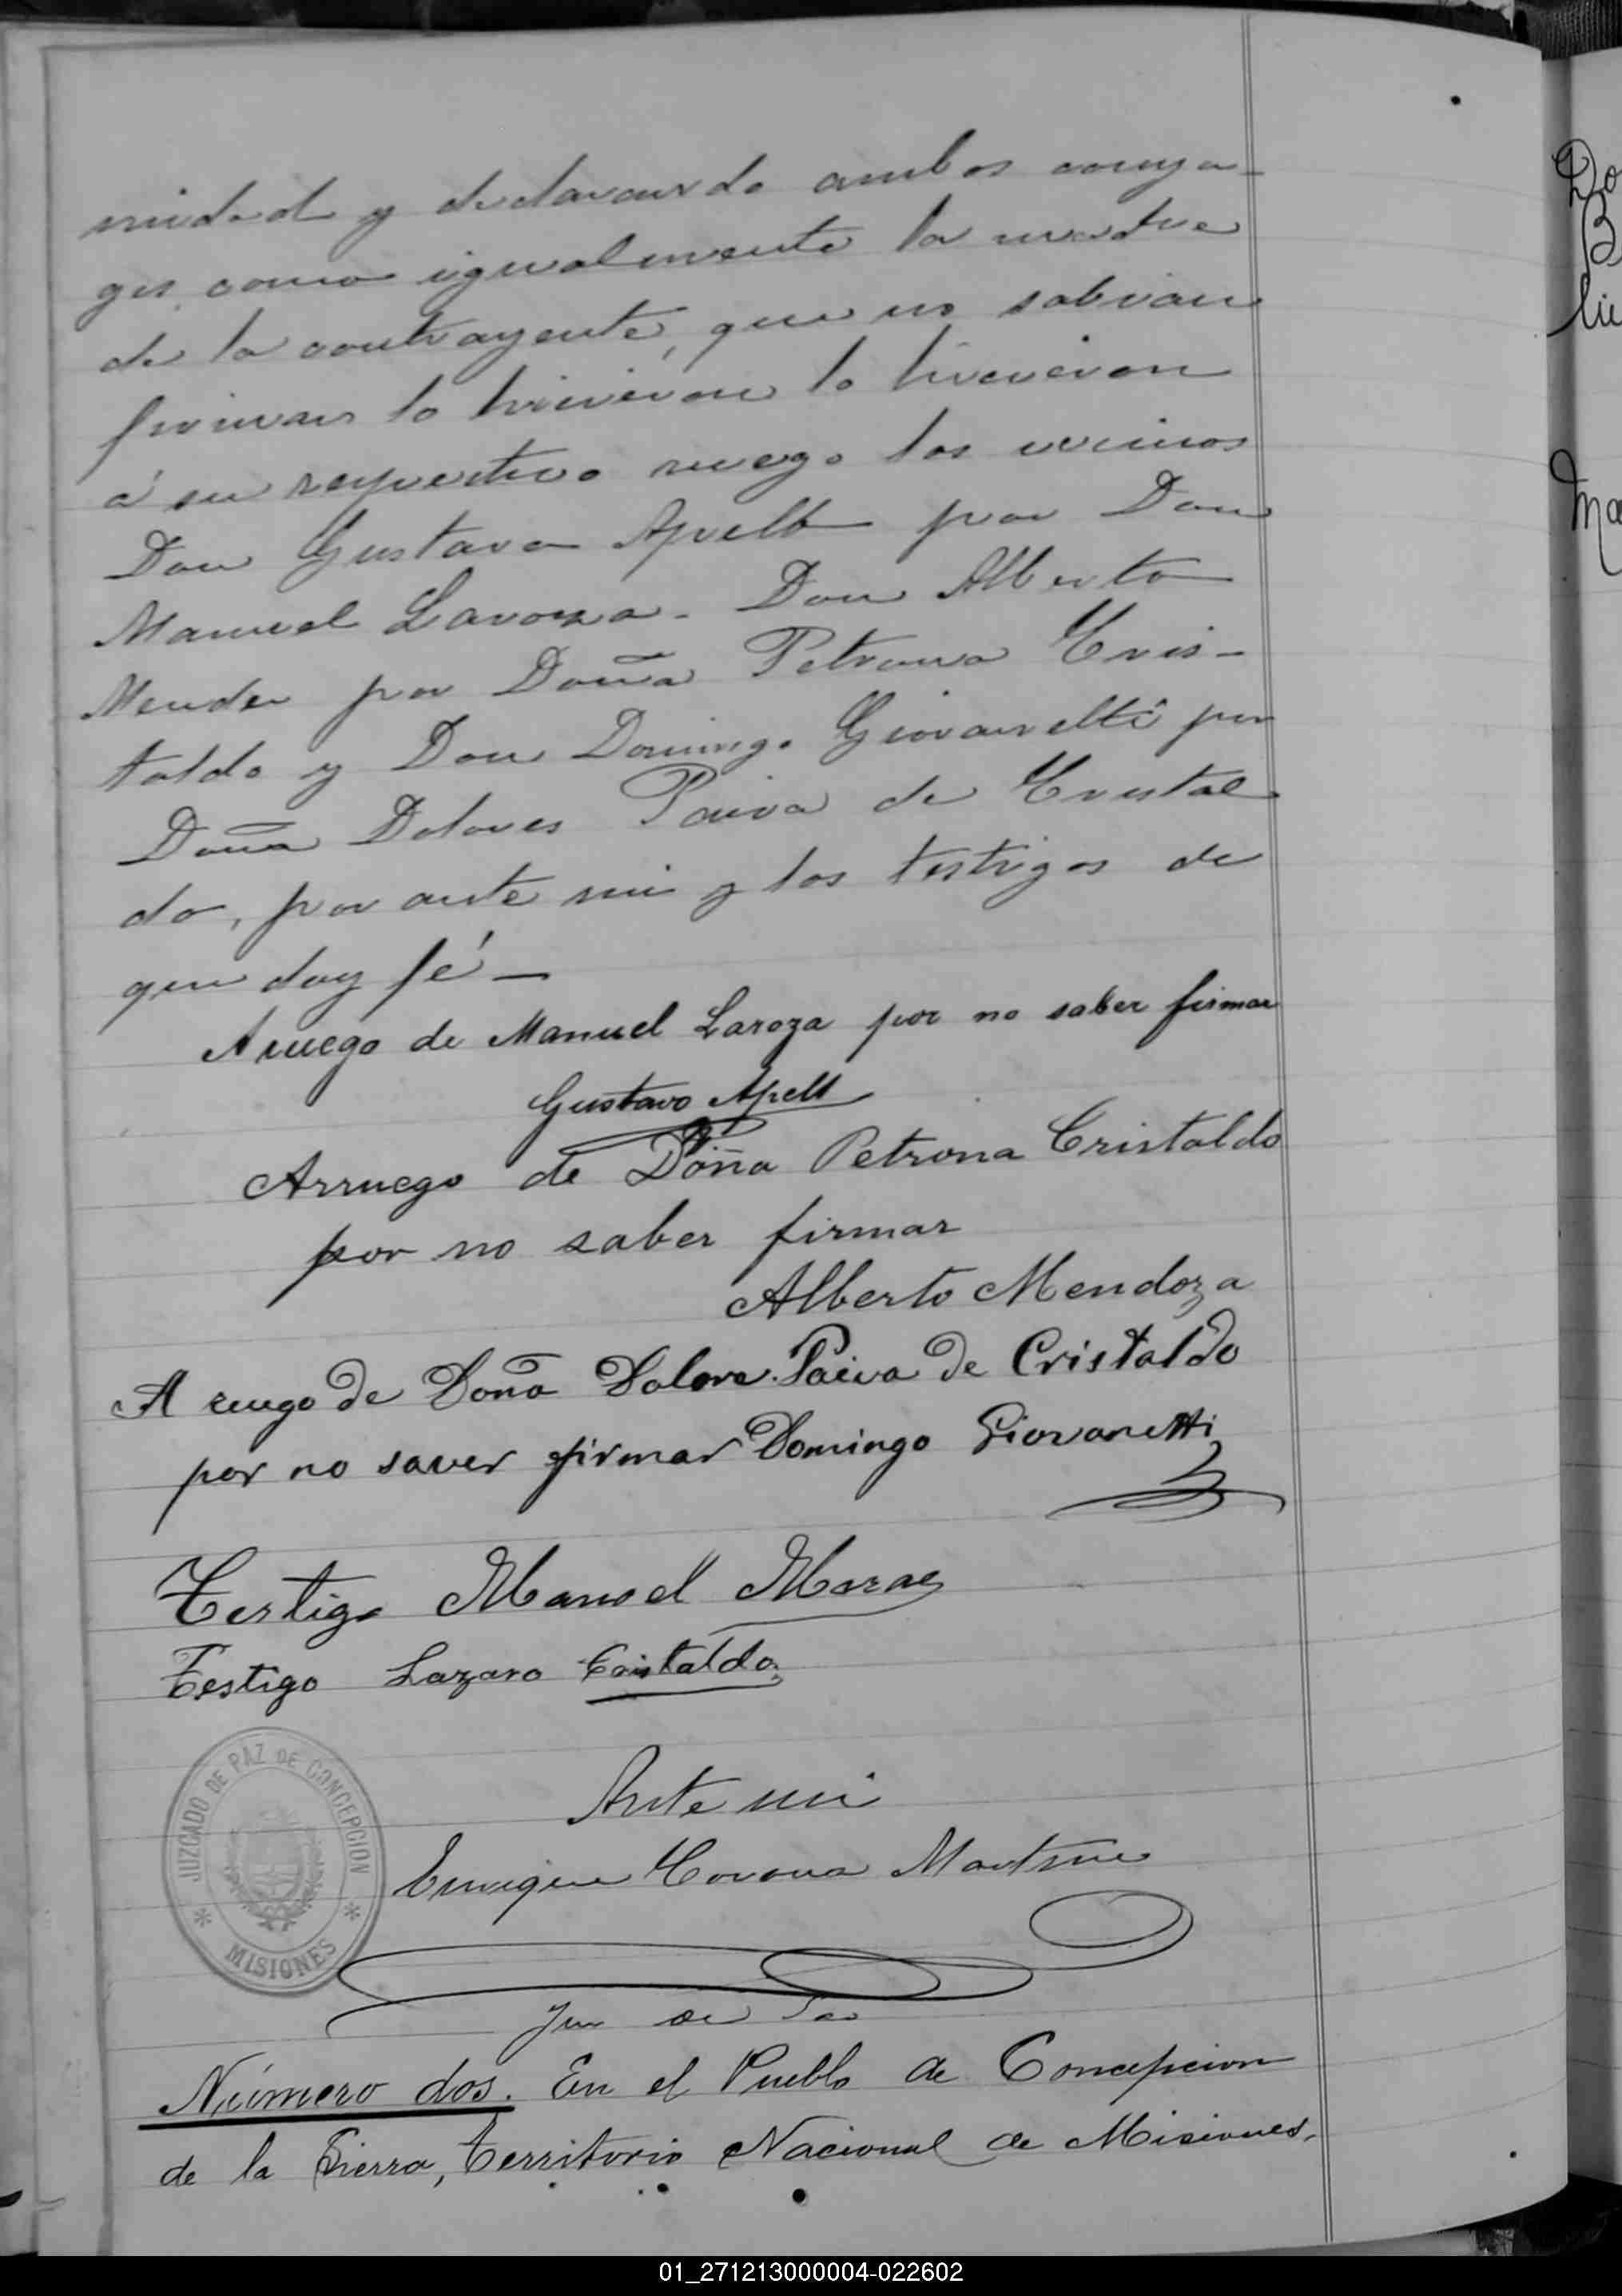 midad y declarando ambos conyu-
ges como igualmente la madre
de la contrayente, que no sabian
firmar lo hicieron lo hicieron
á su respectivo ruego los vecinos
Don Gustavo Apelt por Don
Manuel Laroza - Don Alberto
Mendez por Doña Petrona Cris-
taldo y Don Domingo Giovanetti por
Doña Dolores Paiva de Cristal
do, por ante mi y los testigos de
que doy fé -
A ruego de Manuel Laroza por no saber firmar
Gustavo Apelt
Arruego de Doña Petrona Cristaldo
por no saber firmar
Alberto Mendoza
A ruego de Doña Dolore Paiva de Cristaldo
por no saver firmar Domingo Giovanetti
Testigo Manoel
Testigo Lazaro Cristaldo
JUZGADO DE PAZ DE CONCEPCION
* MISIONES *
Ante mi
Enrique Corona Martinez
Juez de Paz
Número dos. En el Pueblo de Concepcion
de la Sierra, Territorio Nacional de Misiones,
Do
B
lu
Ma
01_271213000004-022602